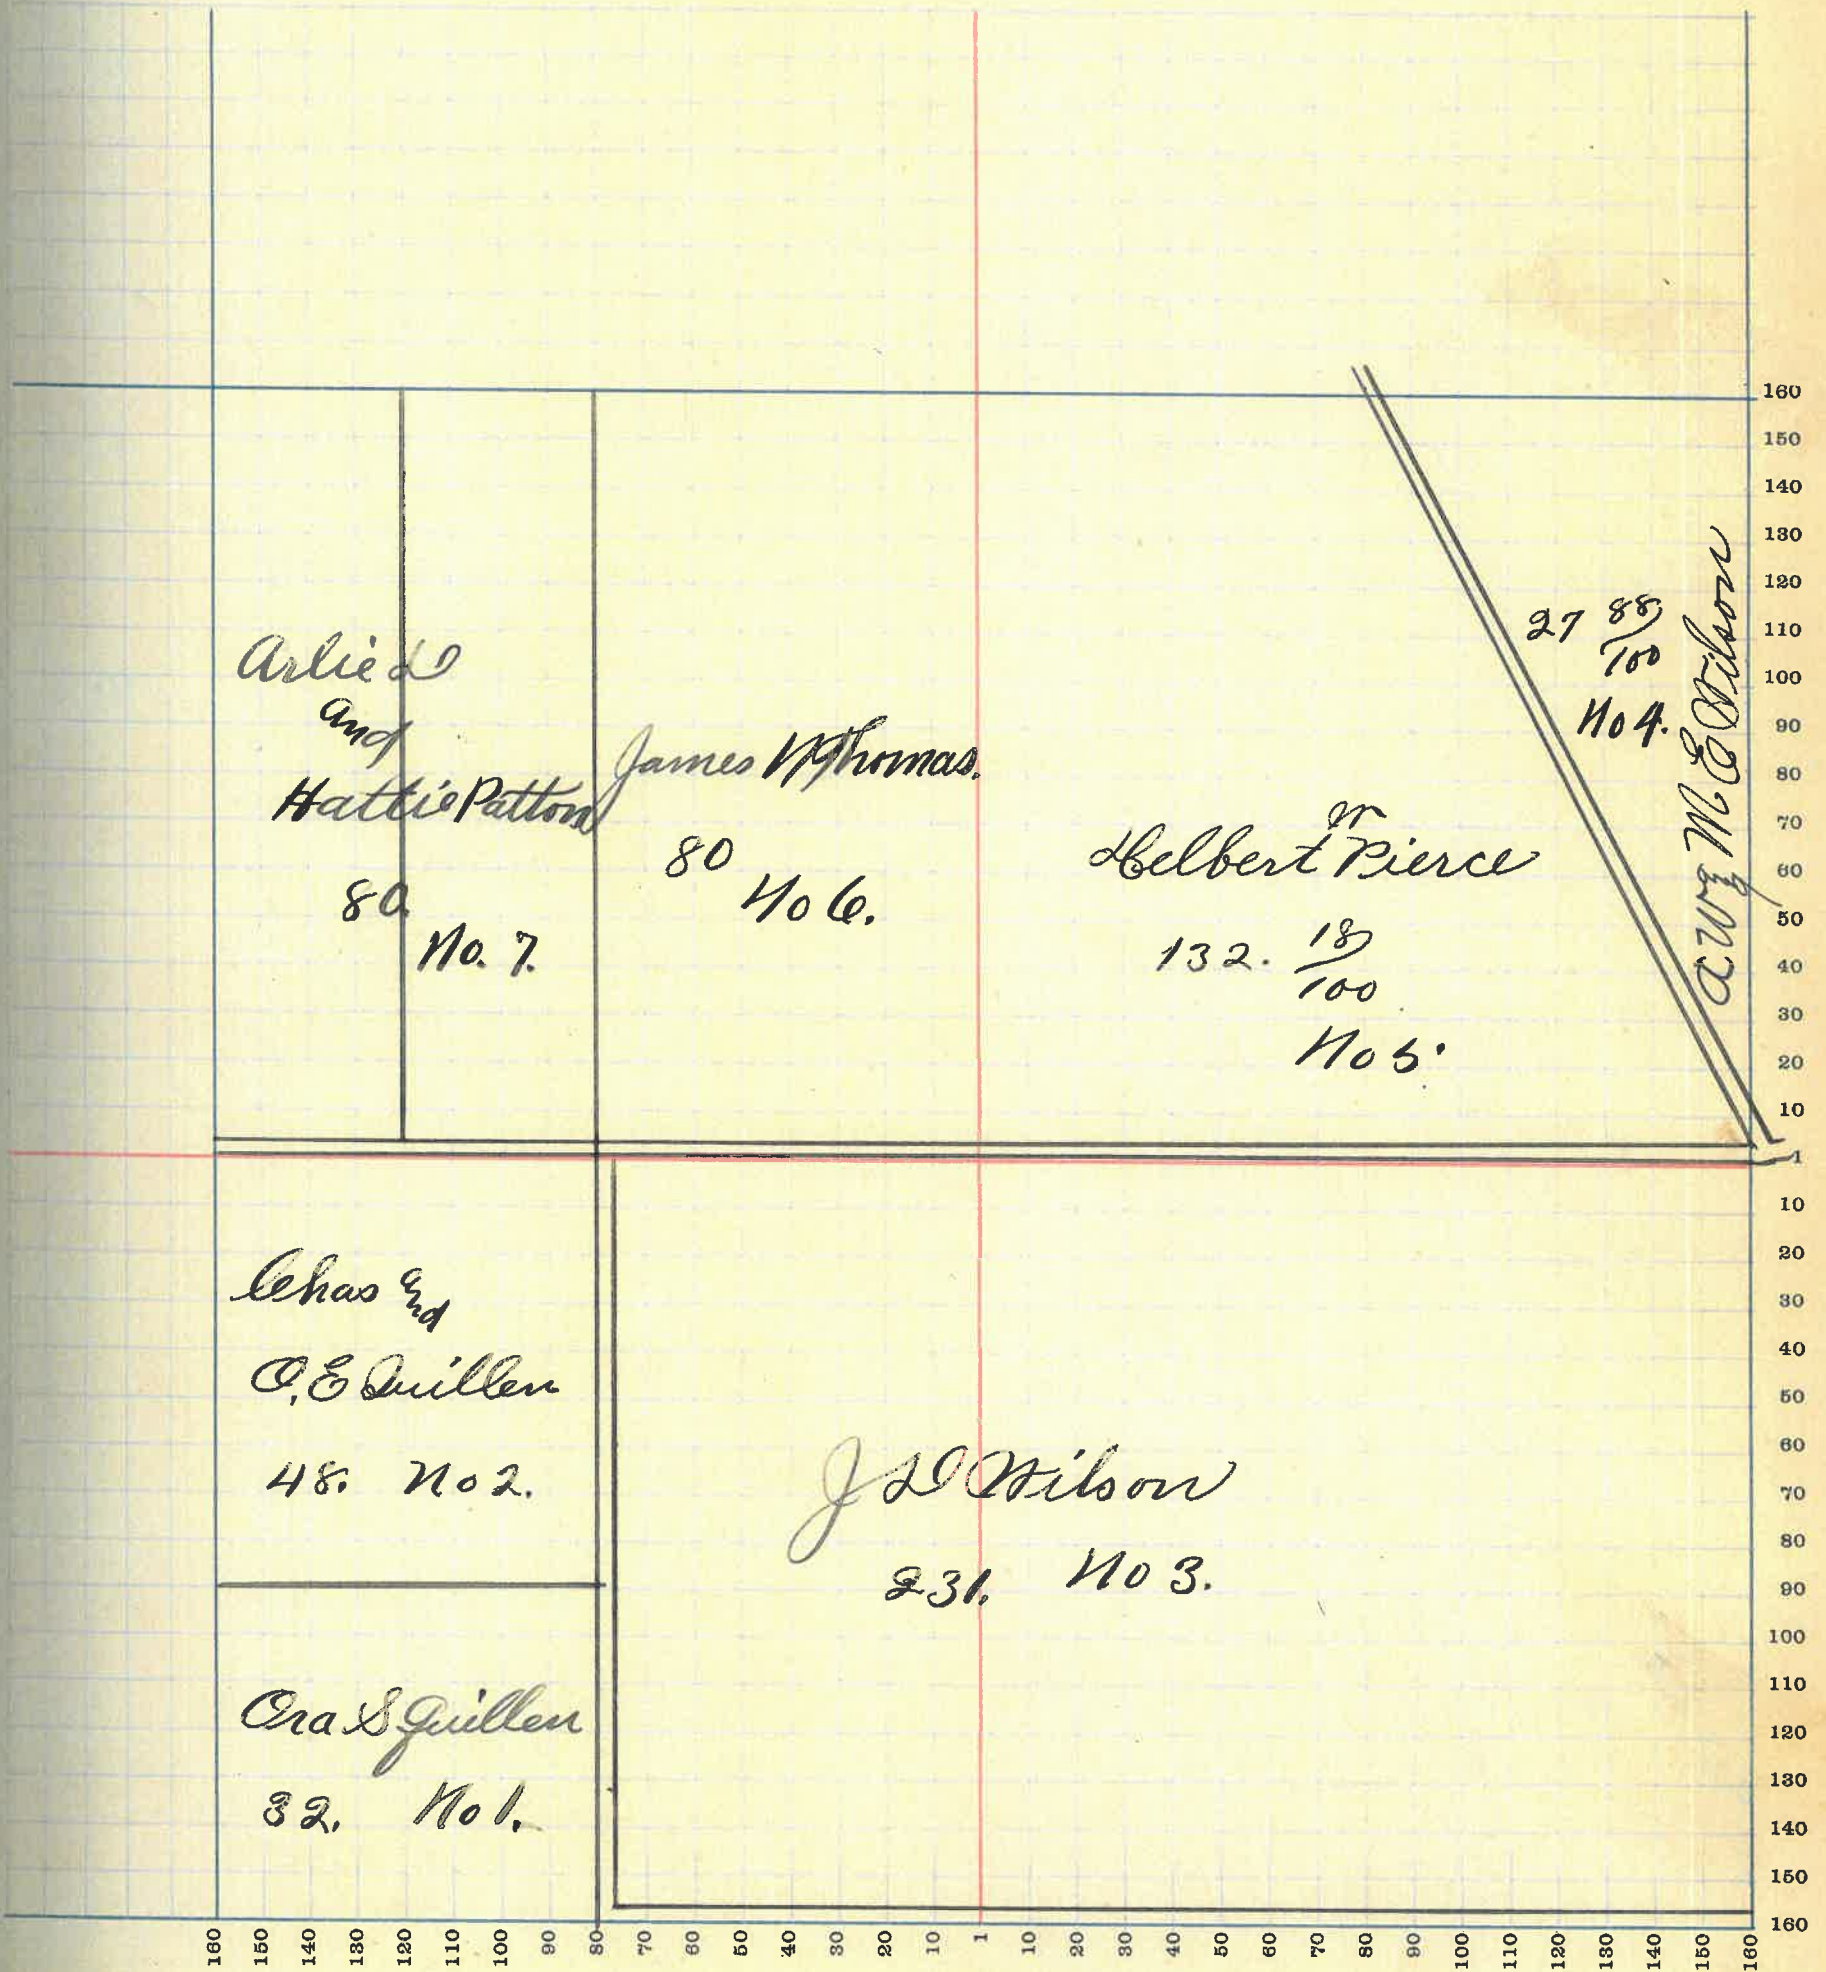 Arlie D
and
Hattie Patton
80
No. 7.
James W Thomas.
80
No 6.
W
Helbert Pierce
132. 18/100
No 5.
27 88/100
No 4.
M E Wilson
Chas and
O. E Quillen
48. No 2.
Ora S Quillen
32. No 1.
J D Wilson
231. No 3.
160
150
140
130
120
110
100
90
80
70
60
50
40
30
20
10
1
10
20
30
40
50
60
70
80
90
100
110
120
130
140
150
160
160 150 140 130 120 110 100 90 80 70 60 50 40 30 20 10 1 10 20 30 40 50 60 70 80 90 100 110 120 130 140 150 160